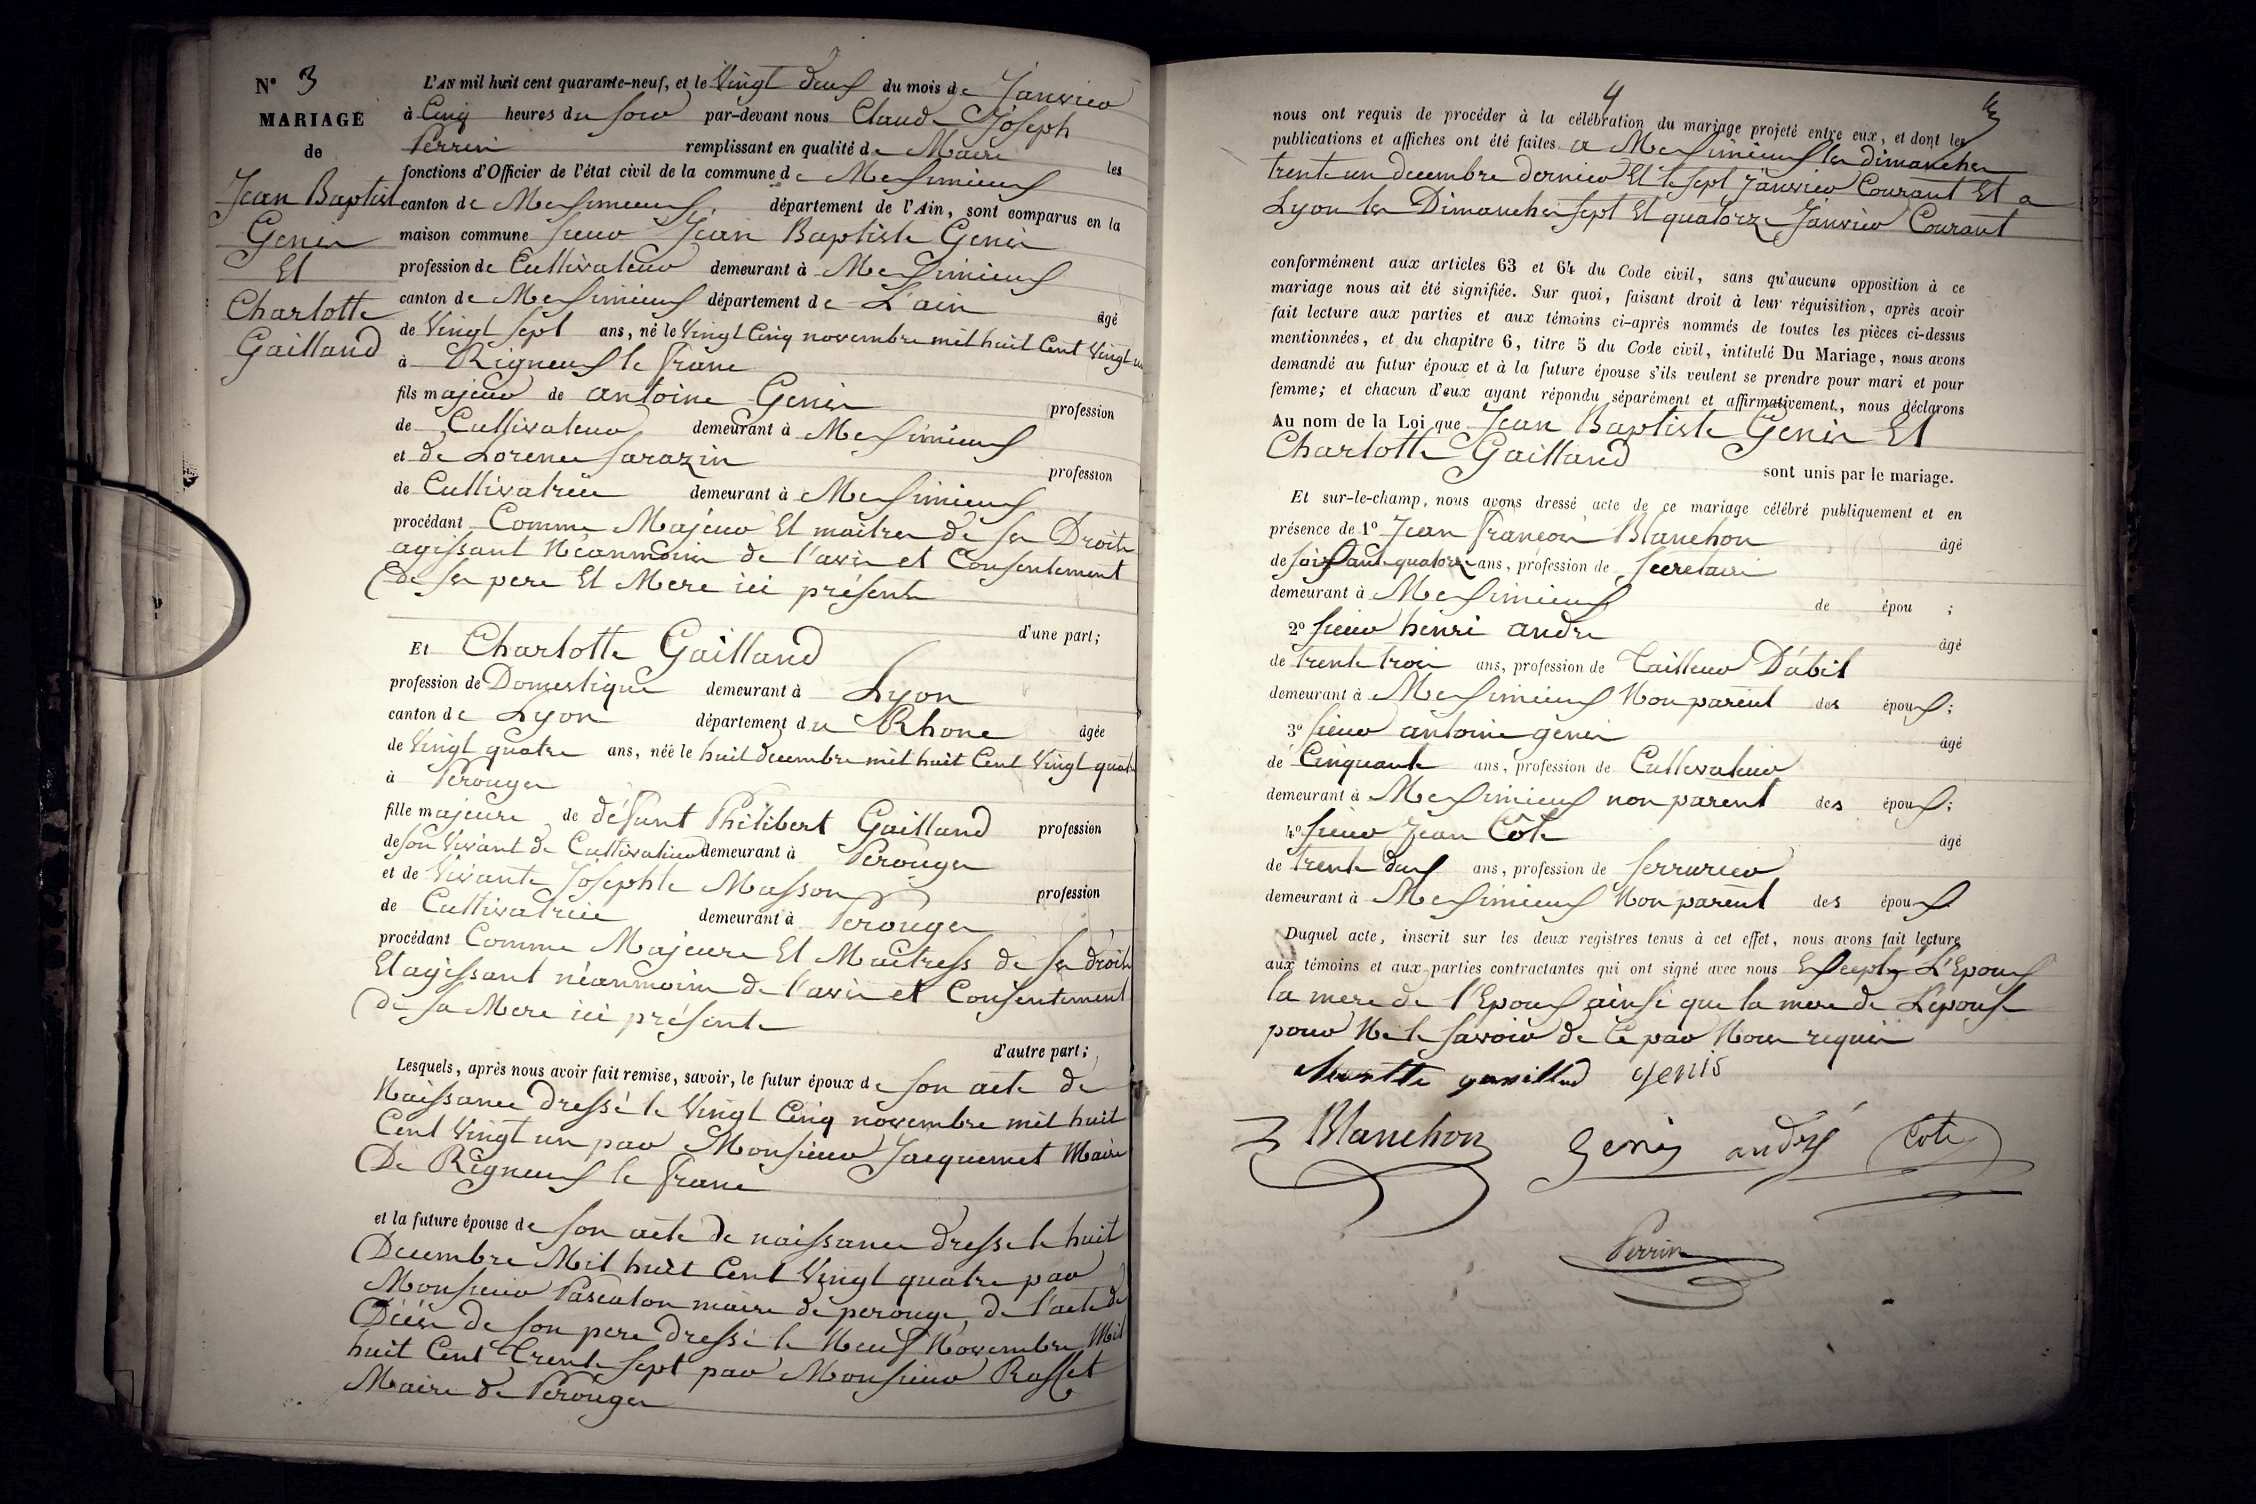 N° 3
MARIAGE
de
Jean Baptiste
Genis
Et
Charlotte
Gailland
L'AN mil huit cent quarante-neuf, et le Vingt deux du mois de Janvier
à Cinq heures du soir par-devant nous Claude Joseph
Perrin remplissant en qualité de Maire les
fonctions d'Officier de l'état civil de la commune de Messimieux
canton de Messimieux, département de l'Ain, sont comparus en la
maison commune sieur Jean Baptiste Genis
profession de Cultivateur demeurant à Messimieux
canton de Messimieux département de L'ain âgé
de Vingt sept ans, né le Vingt Cinq novembre mil huit Cent Vingt un
à Rigneux le franc
fils majeur de antoine Genis profession
de Cultivateur demeurant à Messimieux
et de Lorence Sarazin profession
de Cultivatrice demeurant à Messimieux
procédant Comme Majeur Et maitres de ses Droits
agissant Néanmoins de l'avis et Consentement
De ses pere Et Mere ici présents
d'une part;
Et Charlotte Gailland
profession de Domestique demeurant à Lyon
canton de Lyon département du Rhone âgée
de Vingt quatre ans, néé le huit decembre mil huit Cent Vingt quatre
à Perouges
fille majeure de défunt Philibert Gailland profession
de son Vivant de Cultivateur demeurant à Perouges
et de Vivante Josephte Masson profession
de Cultivatrice demeurant à Perouges
procédant Comme Majeure Et Maitress de ses droits
Et agissant néanmoins de l'avis et Consentement
de sa Mere ici présente
d'autre part;
Lesquels, après nous avoir fait remise, savoir, le futur époux de son acte de
Naissance dressé le Vingt Cinq novembre mil huit
Cent Vingt un par Monsieur Jacquemet Maire
De Rigneux le franc
et la future épouse de son acte de naissance dressé le huit
Decembre Mil huit Cent Vingt quatre par
Monsieur Pascalon maire de perouge, de l'acte de
Décés de son pere dressé le Neuf Novembre Mil
huit Cent Trente sept par Monsieur Rosset
Maire de Perouges
4
nous ont requis de procéder à la célébration du mariage projeté entre eux, et dont les
publications et affiches ont été faites a Messimieux les dimanches
trente un decembre dernier Et le sept janvier Courant Et a
Lyon les Dimanches sept Et quatorze Janvier Courant
conformément aux articles 63 et 64 du Code civil, sans qu'aucune opposition à ce
mariage nous ait été signifiée. Sur quoi, faisant droit à leur réquisition, après avoir
fait lecture aux parties et aux témoins ci-après nommés de toutes les pièces ci-dessus
mentionnées, et du chapitre 6, titre 5 du Code civil, intitulé Du Mariage, nous avons
demandé au futur époux et à la future épouse s'ils veulent se prendre pour mari et pour
femme; et chacun d'eux ayant répondu séparément et affirmativement, nous déclarons
Au nom de la Loi que Jean Baptiste Genis Et
Charlotte Gailland sont unis par le mariage.
Et sur-le-champ, nous avons dressé acte de ce mariage célébré publiquement et en
présence de 1° Jean François Blanchon âgé
de soixante quatorze ans, profession de secretaire
demeurant à Messimieux de épou ;
2° sieur henri andre âgé
de trente trois ans, profession de Tailleur D'abit
demeurant à Messimieux Non parent des époux;
3° sieur antoine genis âgé
de Cinquante ans, profession de Cultivateur
demeurant à Messimieux non parent des époux;
4° sieur Jean Côte âgé
de trente deux ans, profession de serrurier
demeurant à Messimieux Non parent des époux
Duquel acte, inscrit sur les deux registres tenus à cet effet, nous avons fait lecture
aux témoins et aux parties contractantes qui ont signé avec nous Excepté L'Epoux
la mere de l'Epoux ainsi que la mere de L'epouse
pour Ne le savoir de Ce par Nous requis
genis
Blanchon Genis andré Cote
Perrin